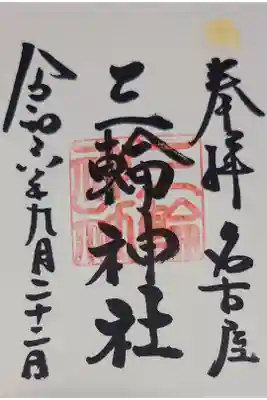 奉拝 名古屋
三輪神社
令和六年九月二十二日